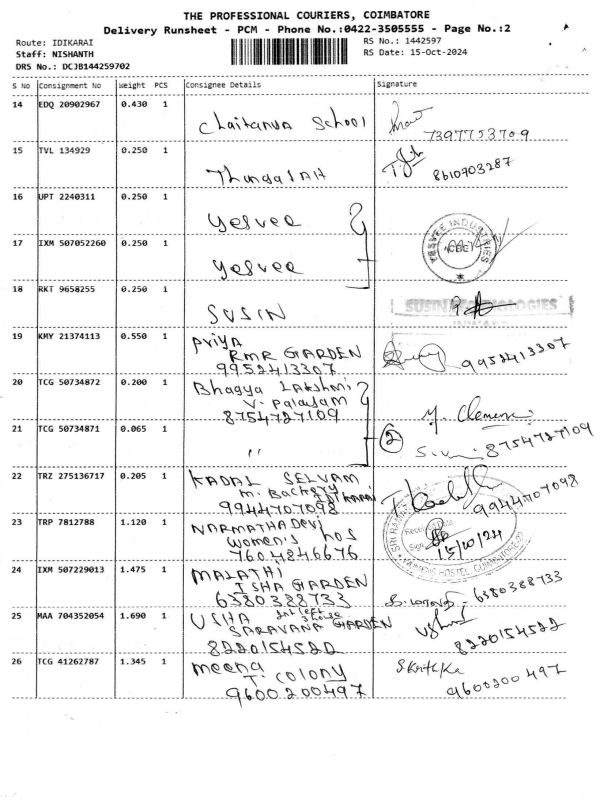 THE PROFESSIONAL COURIERS, COIMBATORE
Delivery Runsheet - PCM - Phone No.:0422-3505555 - Page No.:2
Route: IDIKARAI
RS No.: 1442597
Staff: NISHANTH
RS Date: 15-Oct-2024
DRS No.: DCJB144259702
S No Consignment No Weight PCS Consignee Details Signature
14 EDQ 20902967 0.430 1
Chaitanya School
7397753709
15 TVL 134929 0.250 1
8610903287
16 UPT 2240311 0.250 1
Yesvee
YESVEE INDUSTRIES
17 IXM 507052260 0.250 1
Yesvee
18 RKT 9658255 0.250 1
SUSIN
SUSIN TECHNOLOGIES
19 KMY 21374113 0.550 1
Priya
RMR GARDEN
9952413307
9952413307
20 TCG 50734872 0.200 1
Bhagya Lakshmi
V. Palayam
8754727109
21 TCG 50734871 0.065 1
"
2
8754727109
22 TRZ 275136717 0.205 1
KADAL SELVAM
9944707098
9944707098
23 TRP 7812788 1.120 1
NARMATHA Devi
Women's hos
7604846676
15/10/24
24 IXM 507229013 1.475 1
MALATHI
ISHA GARDEN
6380388733
6380388733
25 MAA 704352054 1.690 1
USHA 1st left 3 house
SARAVANA GARDEN
8220154522
8220154522
26 TCG 41262787 1.345 1
meena
T. colony
9600200497
9600200497